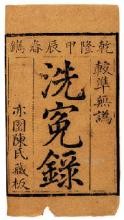 乾隆甲辰春鐫
較準無訛
洗冤錄
亦園陳氏藏板